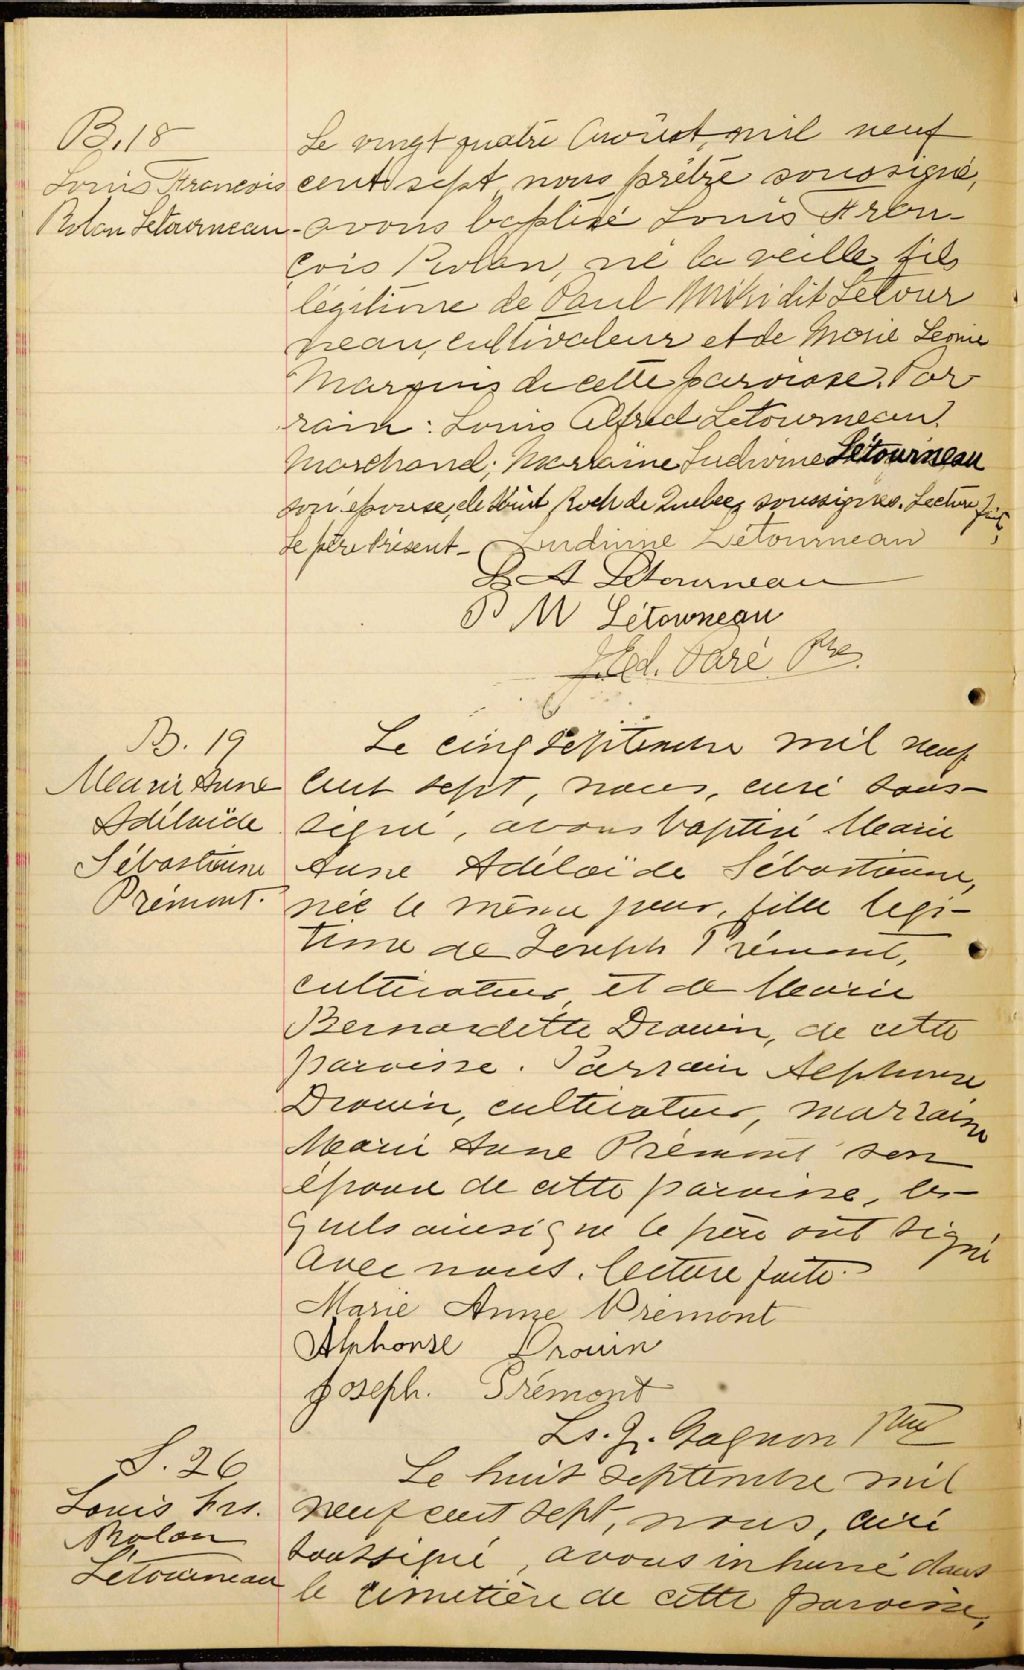 B.18
Louis François
Rolan Letourneau
Le vingt quatre Août mil neuf
cent sept, nous prêtre soussigné,
avons baptisé Louis Fran-
çois Rolan, né la veille fils
légitime de Paul dit Létour
neau, cultivateur et de Marie Leonie
Marquis de cette paroisse. Par-
rain : Louis Alfred Letourneau
marchand; Marraine Ludivine Létourneau
son épouse, de Saint Roch de Quebec, soussignés. Lecture faite,
Le père Présent -
Ludivine Létourneau
L A Letourneau
P M Létourneau
J. Ed. Paré Ptre.
B. 19
Marie Anne
Adélaïde
Sébastienne
Prémont.
Le cinq septembre mil neuf
cent sept, nous, curé sous-
signé, avons baptisé Marie
Anne Adélaïde Sébastienne,
née le même jour, fille légi-
time de Joseph Prémont,
cultivateur, et de Marie
Bernardette Drouin, de cette
paroisse. Parrain Alphonse
Drouin, cultivateur, marraine
Marie Anne Prémont son
épouse de cette paroisse, les-
quels ainsi que le père ont signé
avec nous. Lecture faite.
Marie Anne Prémont
Alphonse Drouin
Joseph. Prémont
Ls. J. Gagnon Ptre
S. 26
Louis Frs.
Rolan
Létourneau
Le huit septembre mil
neuf cent sept, nous, curé
soussigné, avons inhumé dans
le cimetière de cette paroisse,